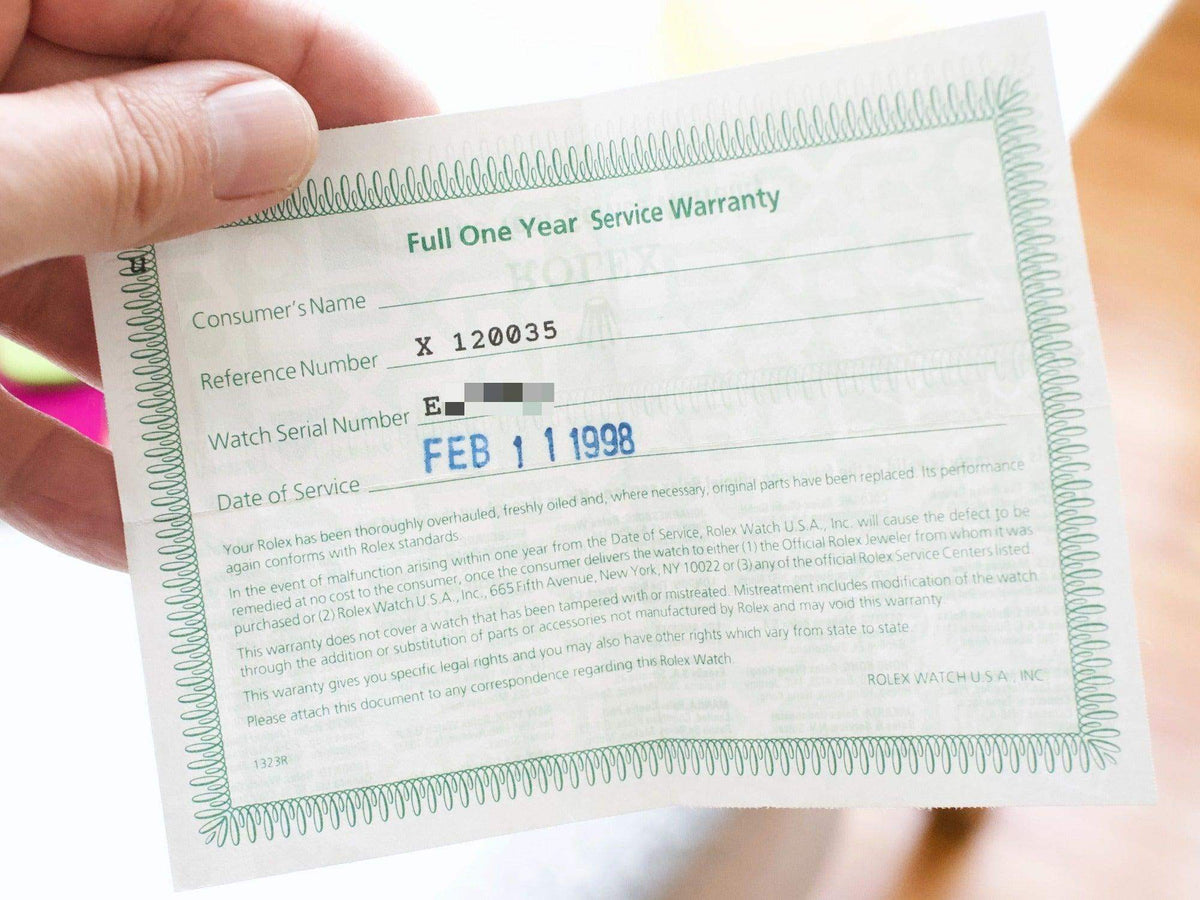 Full One Year Service Warranty
Consumer's Name
Reference Number X 120035
Watch Serial Number E
Date of Service FEB 11 1998
Your Rolex has been thoroughly overhauled, freshly oiled and, where necessary, original parts have been replaced. Its performance
again conforms with Rolex standards.
In the event of malfunction arising within one year from the Date of Service, Rolex Watch U.S.A., Inc. will cause the defect to be
remedied at no cost to the consumer, once the consumer delivers the watch to either (1) the Official Rolex Jeweler from whom it was
purchased or (2) Rolex Watch U.S.A., Inc., 665 Fifth Avenue, New York, NY 10022 or (3) any of the official Rolex Service Centers listed.
This warranty does not cover a watch that has been tampered with or mistreated. Mistreatment includes modification of the watch
through the addition or substitution of parts or accessories not manufactured by Rolex and may void this warranty.
This warranty gives you specific legal rights and you may also have other rights which vary from state to state.
Please attach this document to any correspondence regarding this Rolex Watch.
ROLEX WATCH U.S.A., INC
1323R